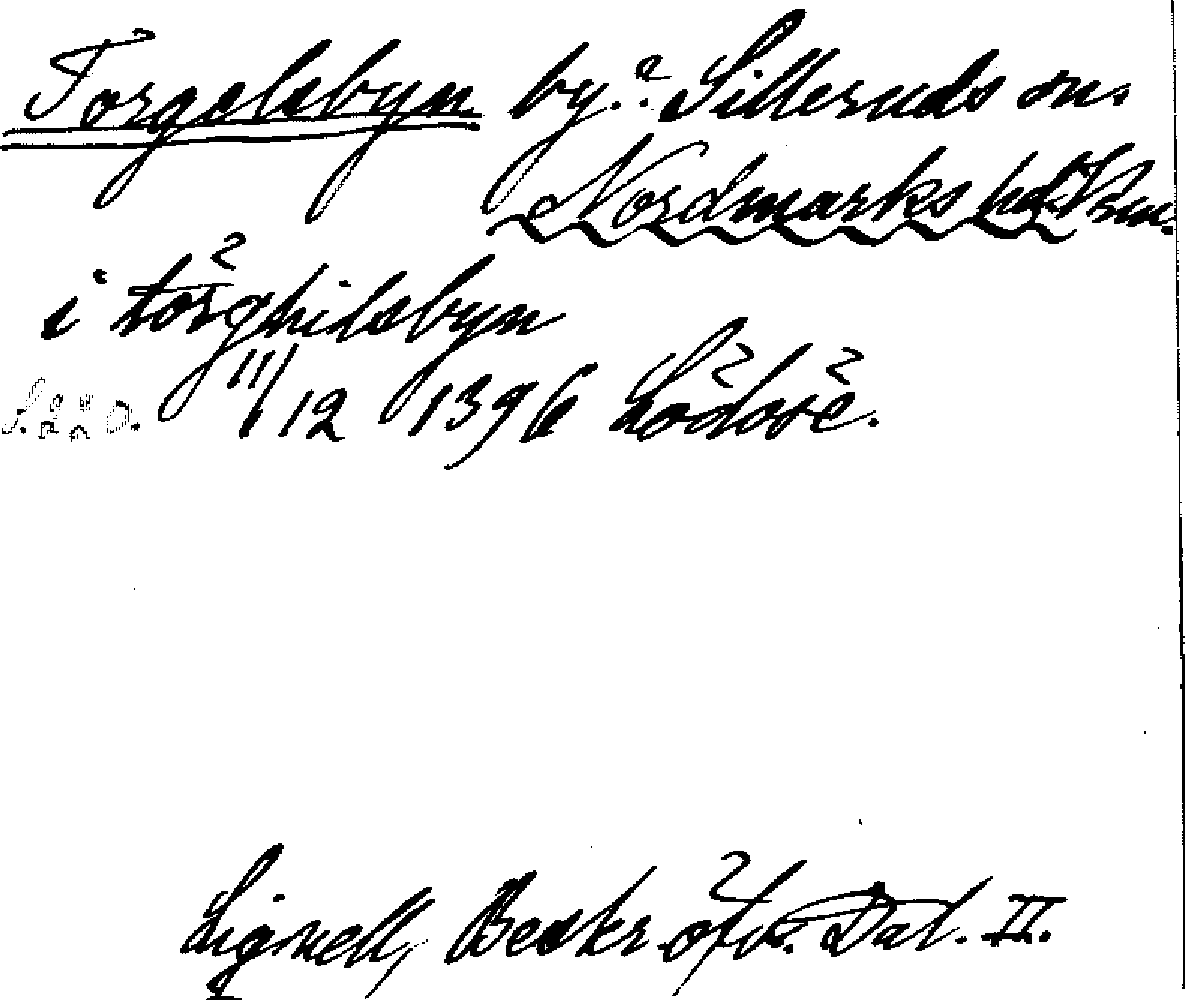 Torgelsbyn by.? Silleruds sn.
Nordmarks hd Vrm.
i törghilsbyn
S. 220. 11/12 1396 Lödöse.
Lignell, Beskr. öfv. Dal. II.